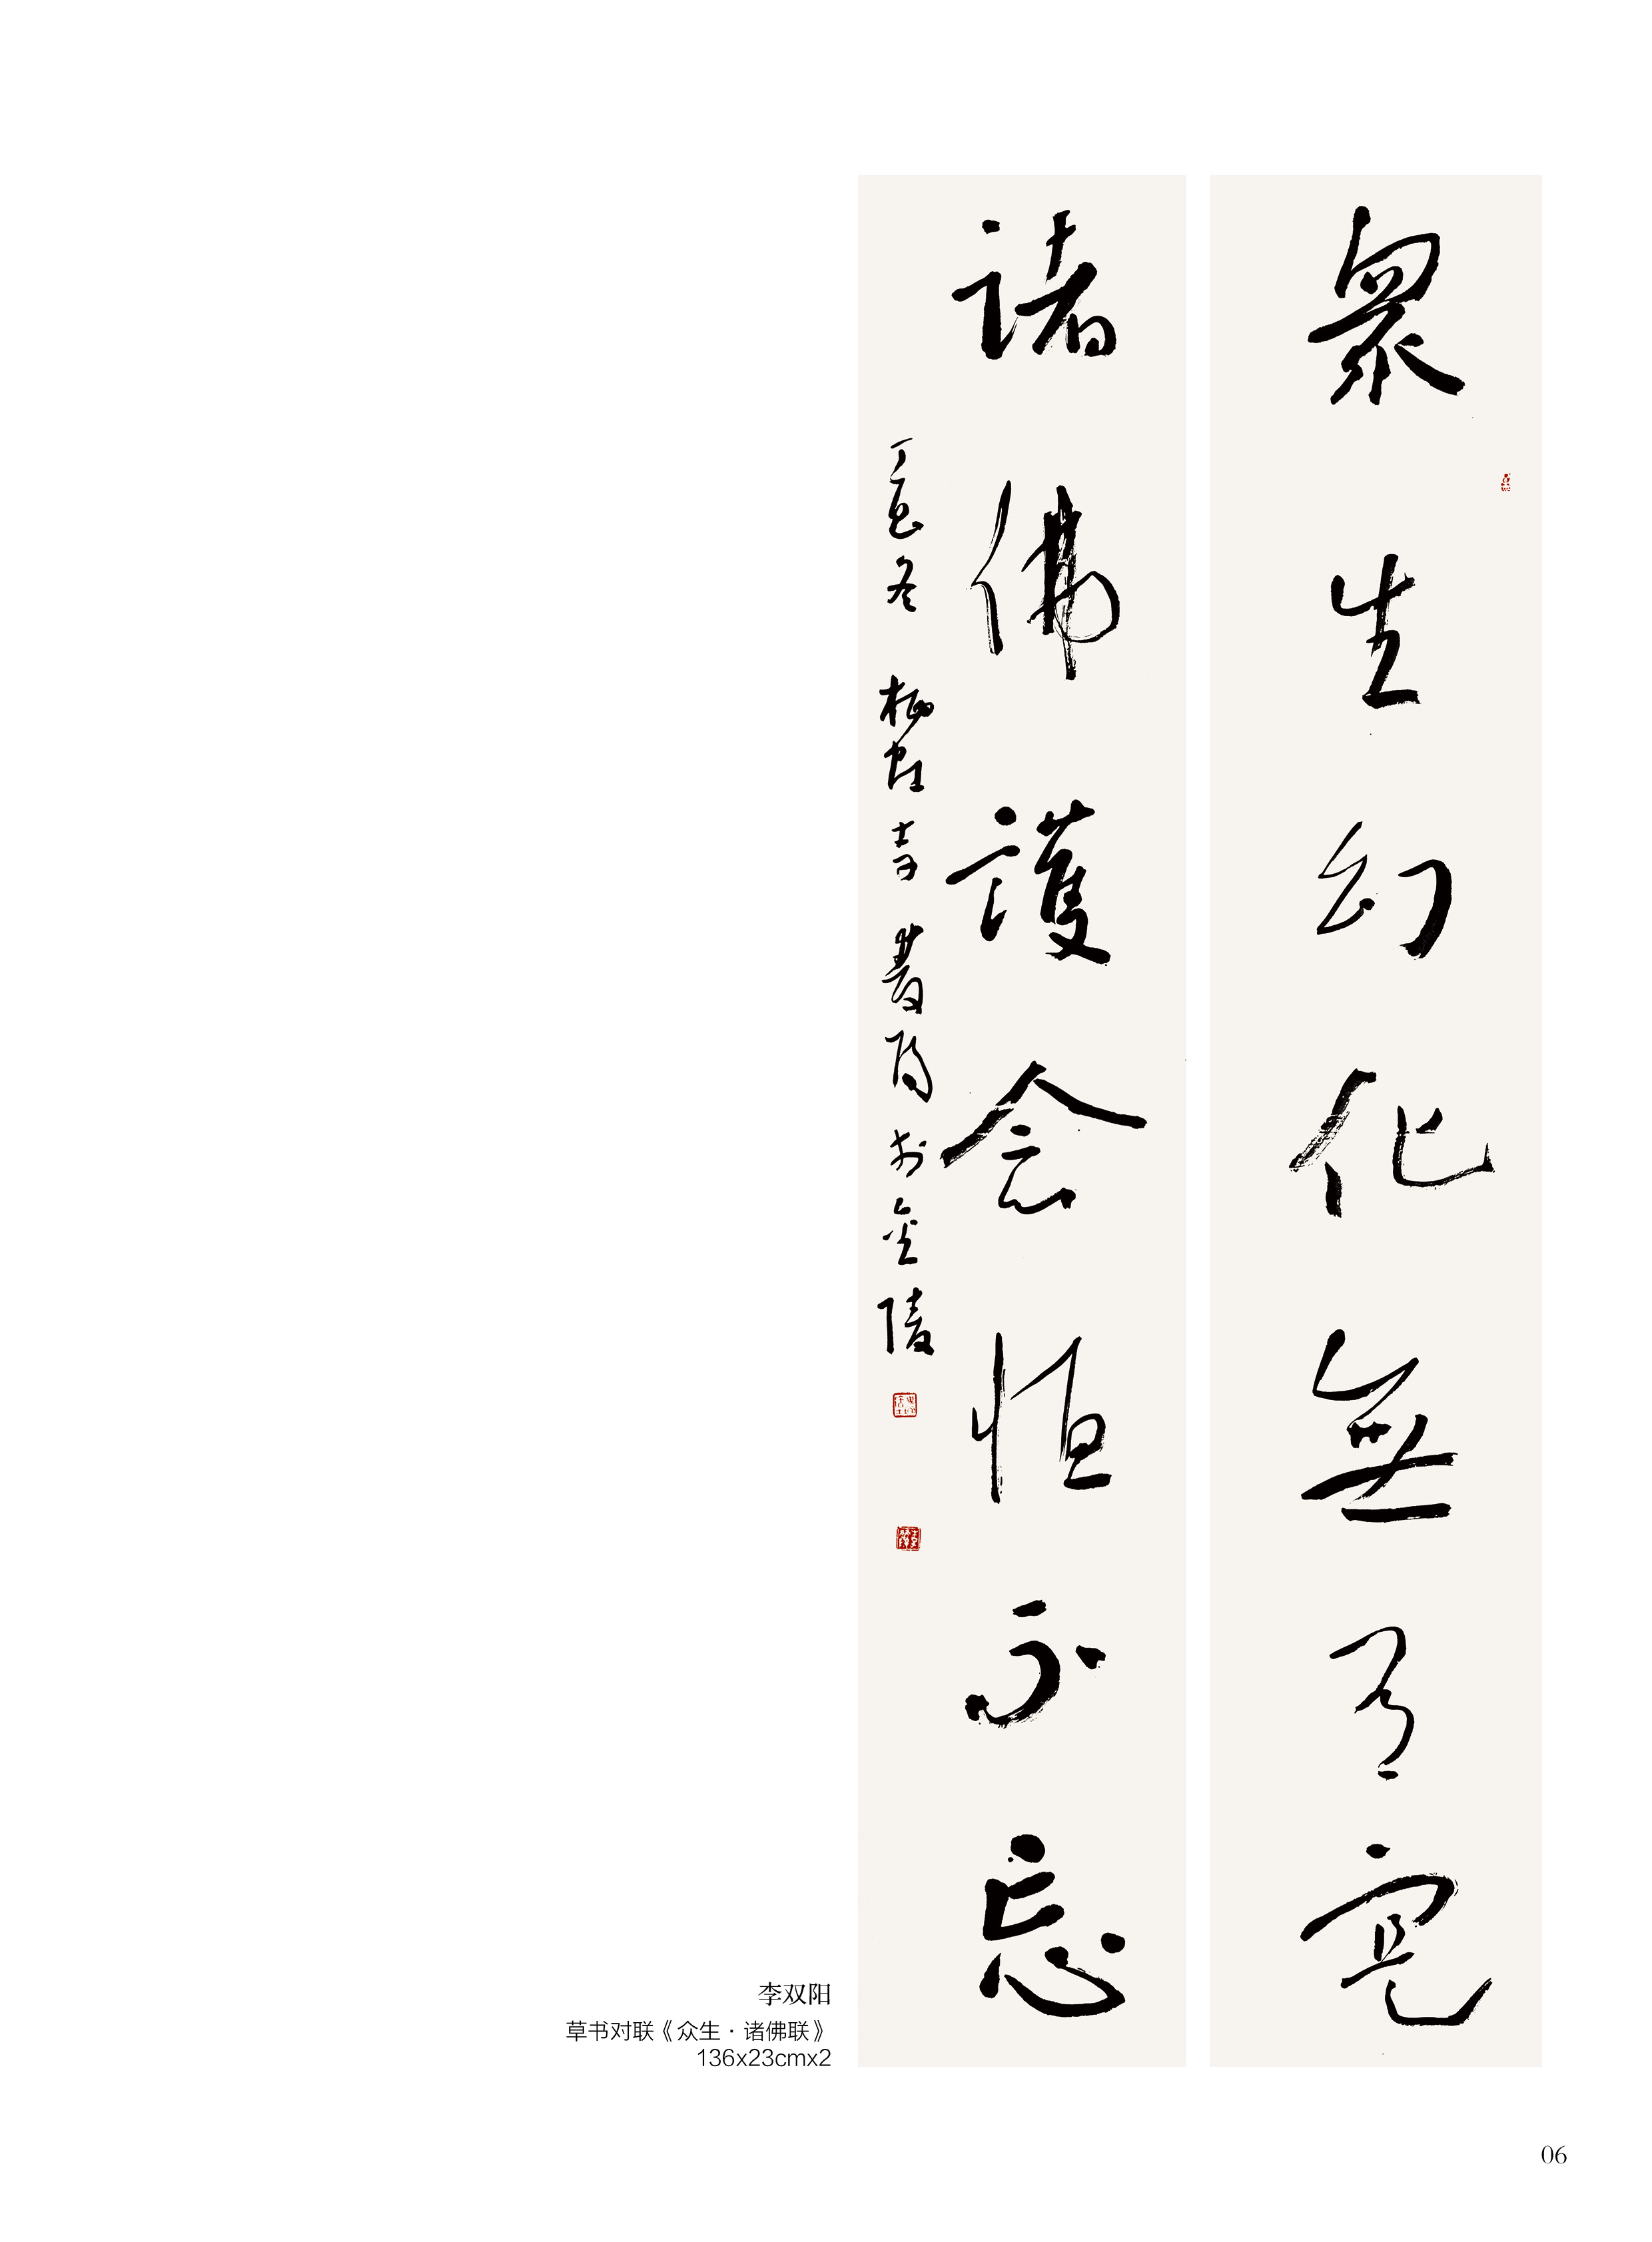 眾生幻化無有
諸佛護念恒不忘
丁酉冬 雙陽於金陵
李双阳
草书对联《众生·诸佛联》
136x23cmx2
06